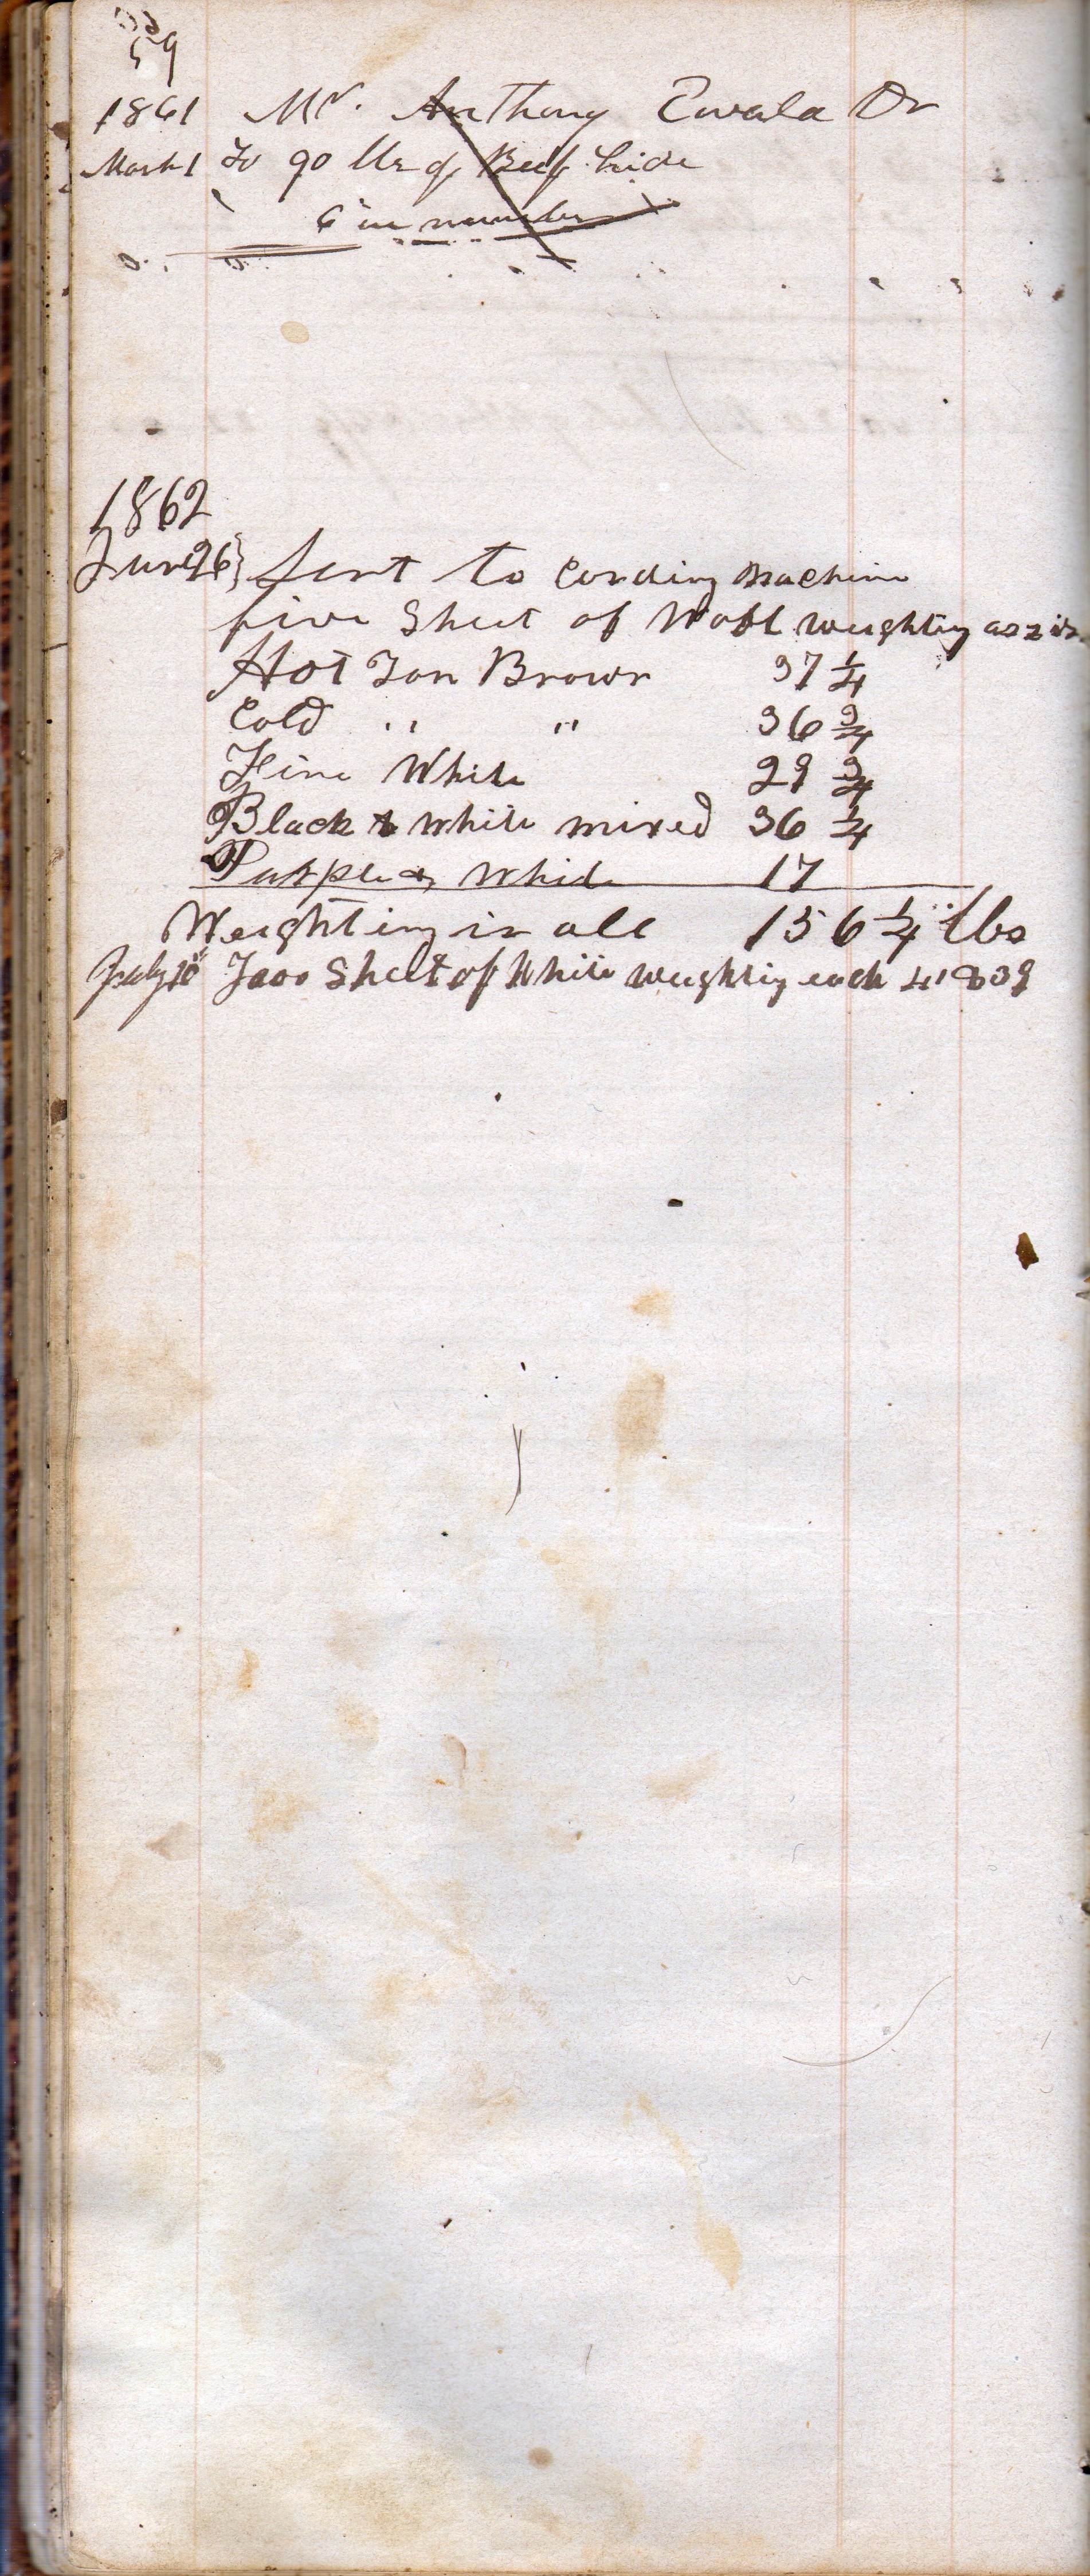 59
1861 Mr. Anthony Ewala Dr
March 1 To 90 lbs of Beef hide
6 in number
1862
June 26} Sent to Carding Machine
five Sheet of Wool weighting as is
Hot Tan Brown 37 1/4
Cold " " 36 3/4
Fine White 29 3/4
Black & White mixed 36 1/4
Purple & White 17
Weighting in all 156 1/4 lbs
July 10 Two Sheet of White weighting each 41 & 39